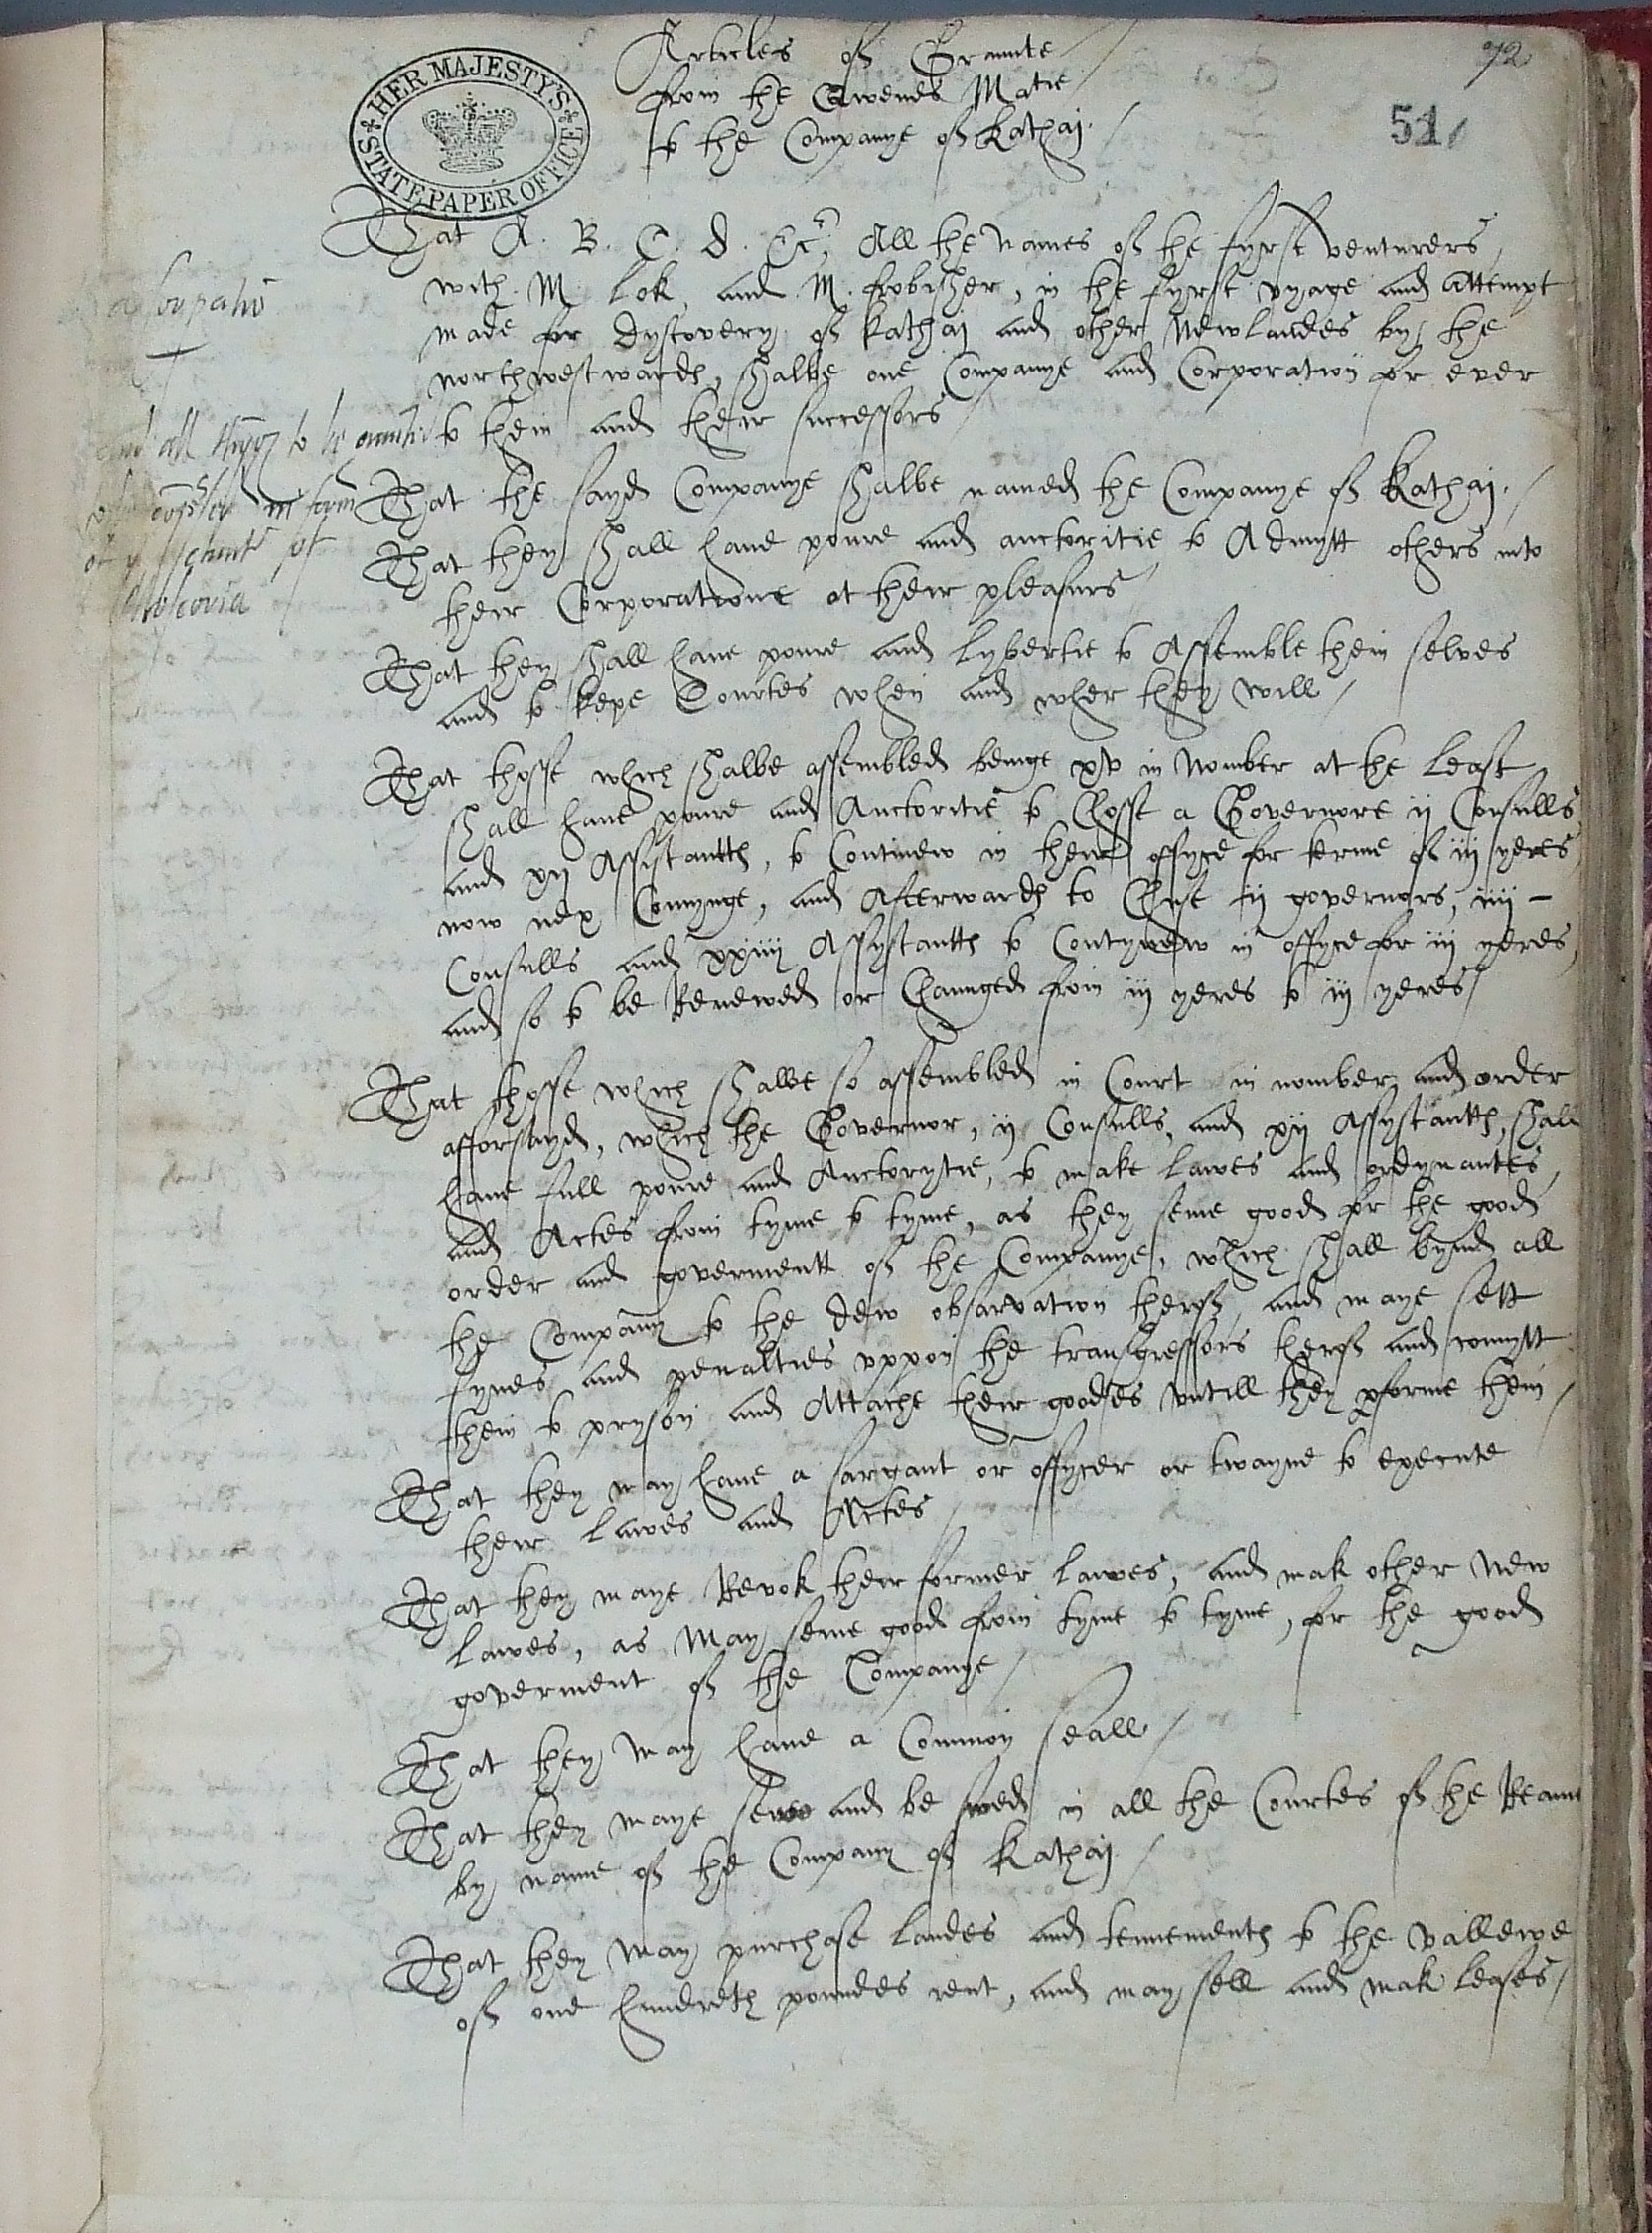 Articles of Graunte
from the Qwenes Matie
to the Companye of Kathai.
72
51
HER MAJESTY'S STATE PAPER OFFICE
That A. B. C. D. &c, All the names of the fyrst venturers
with M. Lok, and M. frobisher, in the fyrst vyage and Attempt
made for dyscovery of Kathai and other New landes by the
northwestwards, shalbe one Companye and Corporation for ever
to them and their successors
and all thyngs to be
in form
of
Moscovia
That the sayd Companye shalbe named the Companye of Kathai.
That they shall have powre and auctoritie to Admytt others into
their Corporatione at their pleasurs
That they shall have powre and Lybertie to Assemble them selves
and to kepe Courtes when and wher they will
That thosse which shalbe assembled beinge xv in nomber at the least
shall have powre and Auctoritie to Chosse a Governore ij Consulls
and xij Assistantts, to Continew in their offyce for terme of iij yeres
now nex Comynge, and Afterwards to Chuse ij governors, iiij –
Consulls and xxiiij Assystantts to Contynew in offyce for iij yeres,
and so to be Renewed or Chaunged from iij yeres to iij yeres
That thosse which shalbe so assembled in Court in nomber and order
afforsayd, which the Governor, ij Consulls, and xij Assystantts, shall
have full powre and Auctorytie, to make lawes and ordynances,
and Actes from tyme to tyme, as they seme good for the good
order and govermentt of the Companye, which shall bynd all
the Company to the dew observation therof, and maye sett
fynes and penalties vppon the transgressors therof and comytt
them to pryson and Attache their goodes vntill they pforme them
That they may have a sargant or offycer or twayne to execute
their lawes and Actes
That they maye Revok their former lawes, and mak other New
Lawes, as may seme good from tyme to tyme, for the good
goverment of the Companye
That they may have a Common seall
That they maye sewe and be swed in all the Courtes of the Reame
by name of the Company of Kathai
That they may purchase landes and tennements to the vallewe
of one hundreth poundes rent, and may sell and mak leases